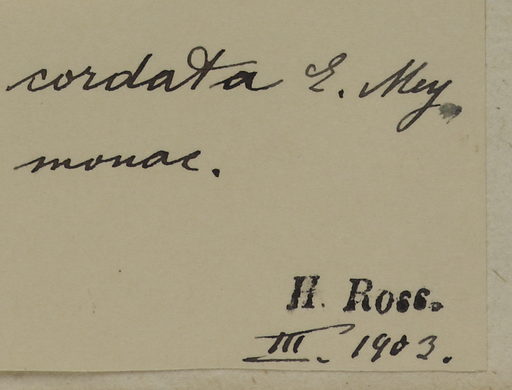 cordata E. Mey
monac.
H. Ross.
III. 1903.